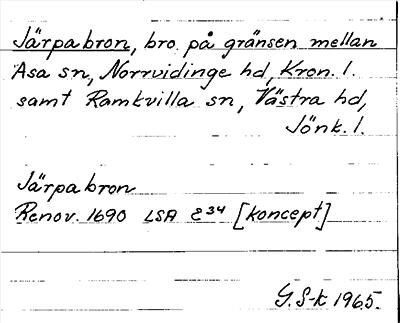 Järpabron, bro på gränsen mellan
Asa sn, Norrvidinge hd, Kron. l.
samt Ramkvilla sn, Västra hd,
Jönk. l.
Järpabron
Renov. 1690 LSA E34 [koncept]
G. S-k 1965.